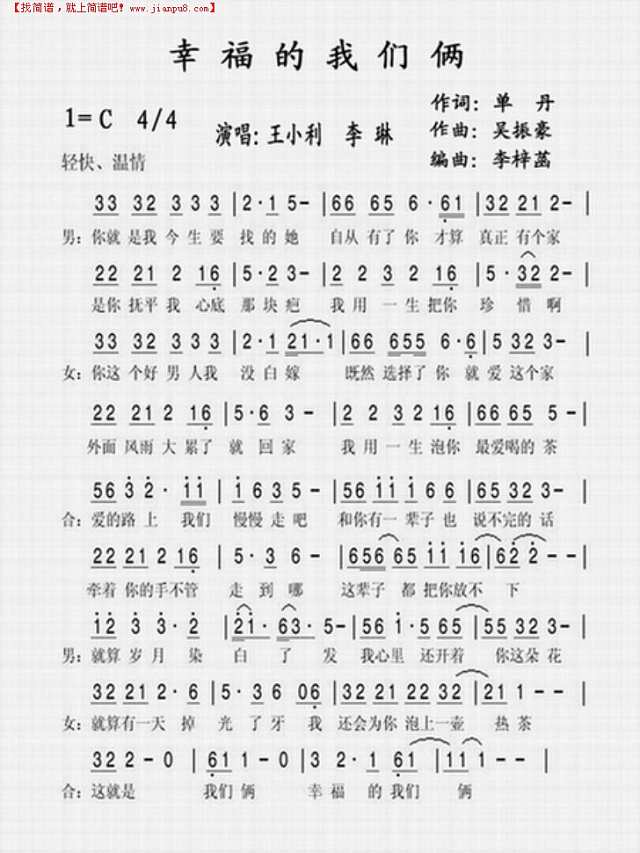 【找简谱，就上简谱吧! www.jianpu8.com】
幸福的我们俩
1=C 4/4
演唱:王小利 李琳
作词: 单丹
作曲: 吴振豪
编曲: 李梓菡
轻快、温情
33 32 3 3 3 |2·1 5- |66 65 6·61 |32 21 2- |
男:你就是我今生要找的她 自从有了你才算真正有个家
22 21 2 16 |5·3 2- |2 2 3 2 16 |5·32 2- |
是你抚平我心底那块疤 我用一生把你珍惜啊
33 32 3 3 3 |2·1 21·1 |66 655 6·6 |56 53 3- |
女:你这个好男人我没白嫁 既然选择了你就爱这个家
22 21 2 16 |5·6 3- |2 2 3 2 16 |65 65 5- |
外面风雨大累了就回家 我用一生泡你最爱喝的茶
56 3 2·11 |1 6 3 5- |56 32 2 1 6 |65 32 3- |
合:爱的路上我们慢慢走吧 和你有一辈子也说不完的话
22 21 2 16 |5·3 6- |656 65 11 16 |62 2- |
牵着你的手不管走到哪 这辈子都把你放不下
12 3 3·2 |21·63·5 |56 1 65 65 |55 32 3- |
男:就算岁月染白了发 我心里还开着你这朵花
32 21 2·6 |5·3 6 06 |12 21 22 32 |21 1- |
女:就算有一天掉光了牙我还会为你泡上一壶热茶
32 2-0 |61 1-0 |3 2·1 61 |11 1-- |
合:这就是我们俩 幸福的我们俩